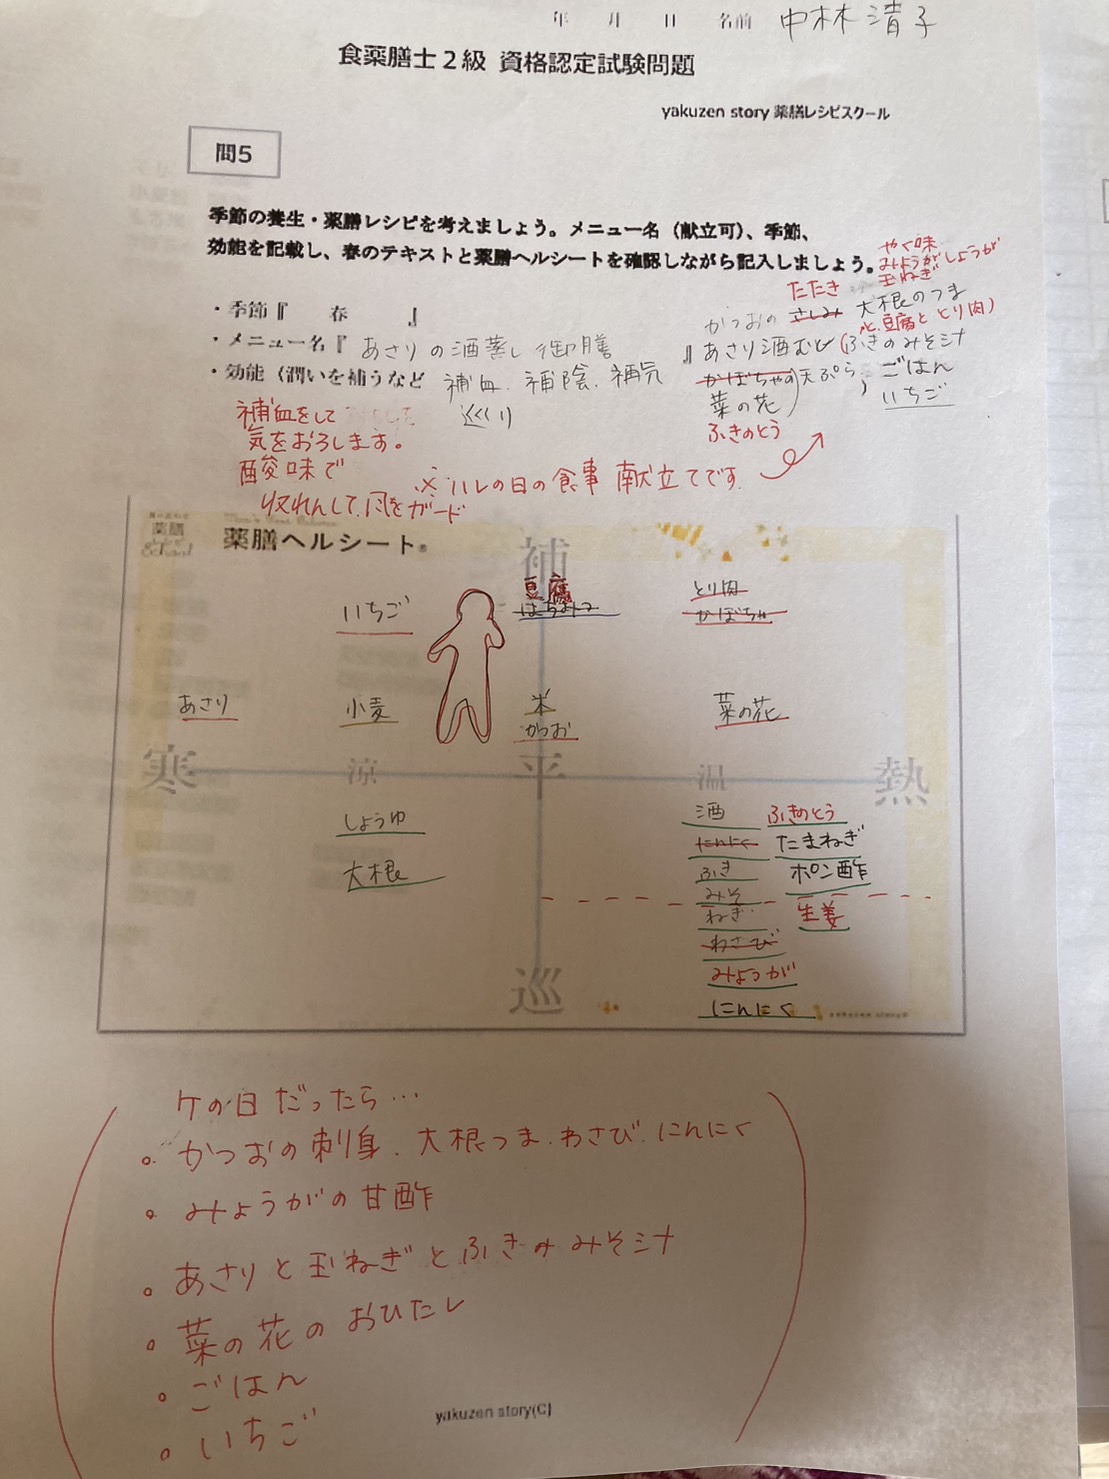 年 月 日 名前 中林 清子
食薬膳士2級 資格認定試験問題
yakuzen story 薬膳レシピスクール
問5
季節の養生・薬膳レシピを考えましょう。メニュー名（献立可）、季節、
効能を記載し、春のテキストと薬膳ヘルシートを確認しながら記入しましょう。
やく味
みょうが しょうが
玉ねぎ
たたき
・季節『 春 』
かつおの さしみ 大根のつま
と豆腐ととり肉)
・メニュー名『 あさりの酒蒸し御膳 』
あさり酒むし (ふきのみそ汁
・効能（潤いを補うなど 補血、補陰、補気
巡り
かぼちゃの天ぷら, ごはん
菜の花) いちご
ふきのとう
補血をして
気をおろします。
酸味で
収れんして、風をガード
※ハレの日の食事 献立てです。
薬膳
School
薬膳ヘルシート®
補
いちご
豆腐
はちみつ
とり肉
かぼちゃ
あさり
小麦
米
かつお
菜の花
寒 涼 平 温 熱
しょうゆ
大根
酒 ふきのとう
にんにく たまねぎ
ふき ポン酢
みそ
ねぎ 生姜
わさび
みょうが
にんにく
巡
ケの日だったら…
○ かつおの刺身、大根つま、わさび、にんにく
○ みょうがの甘酢
○ あさりと玉ねぎとふきのみそ汁
○ 菜の花のおひたし
○ ごはん
○ いちご
yakuzen story(C)